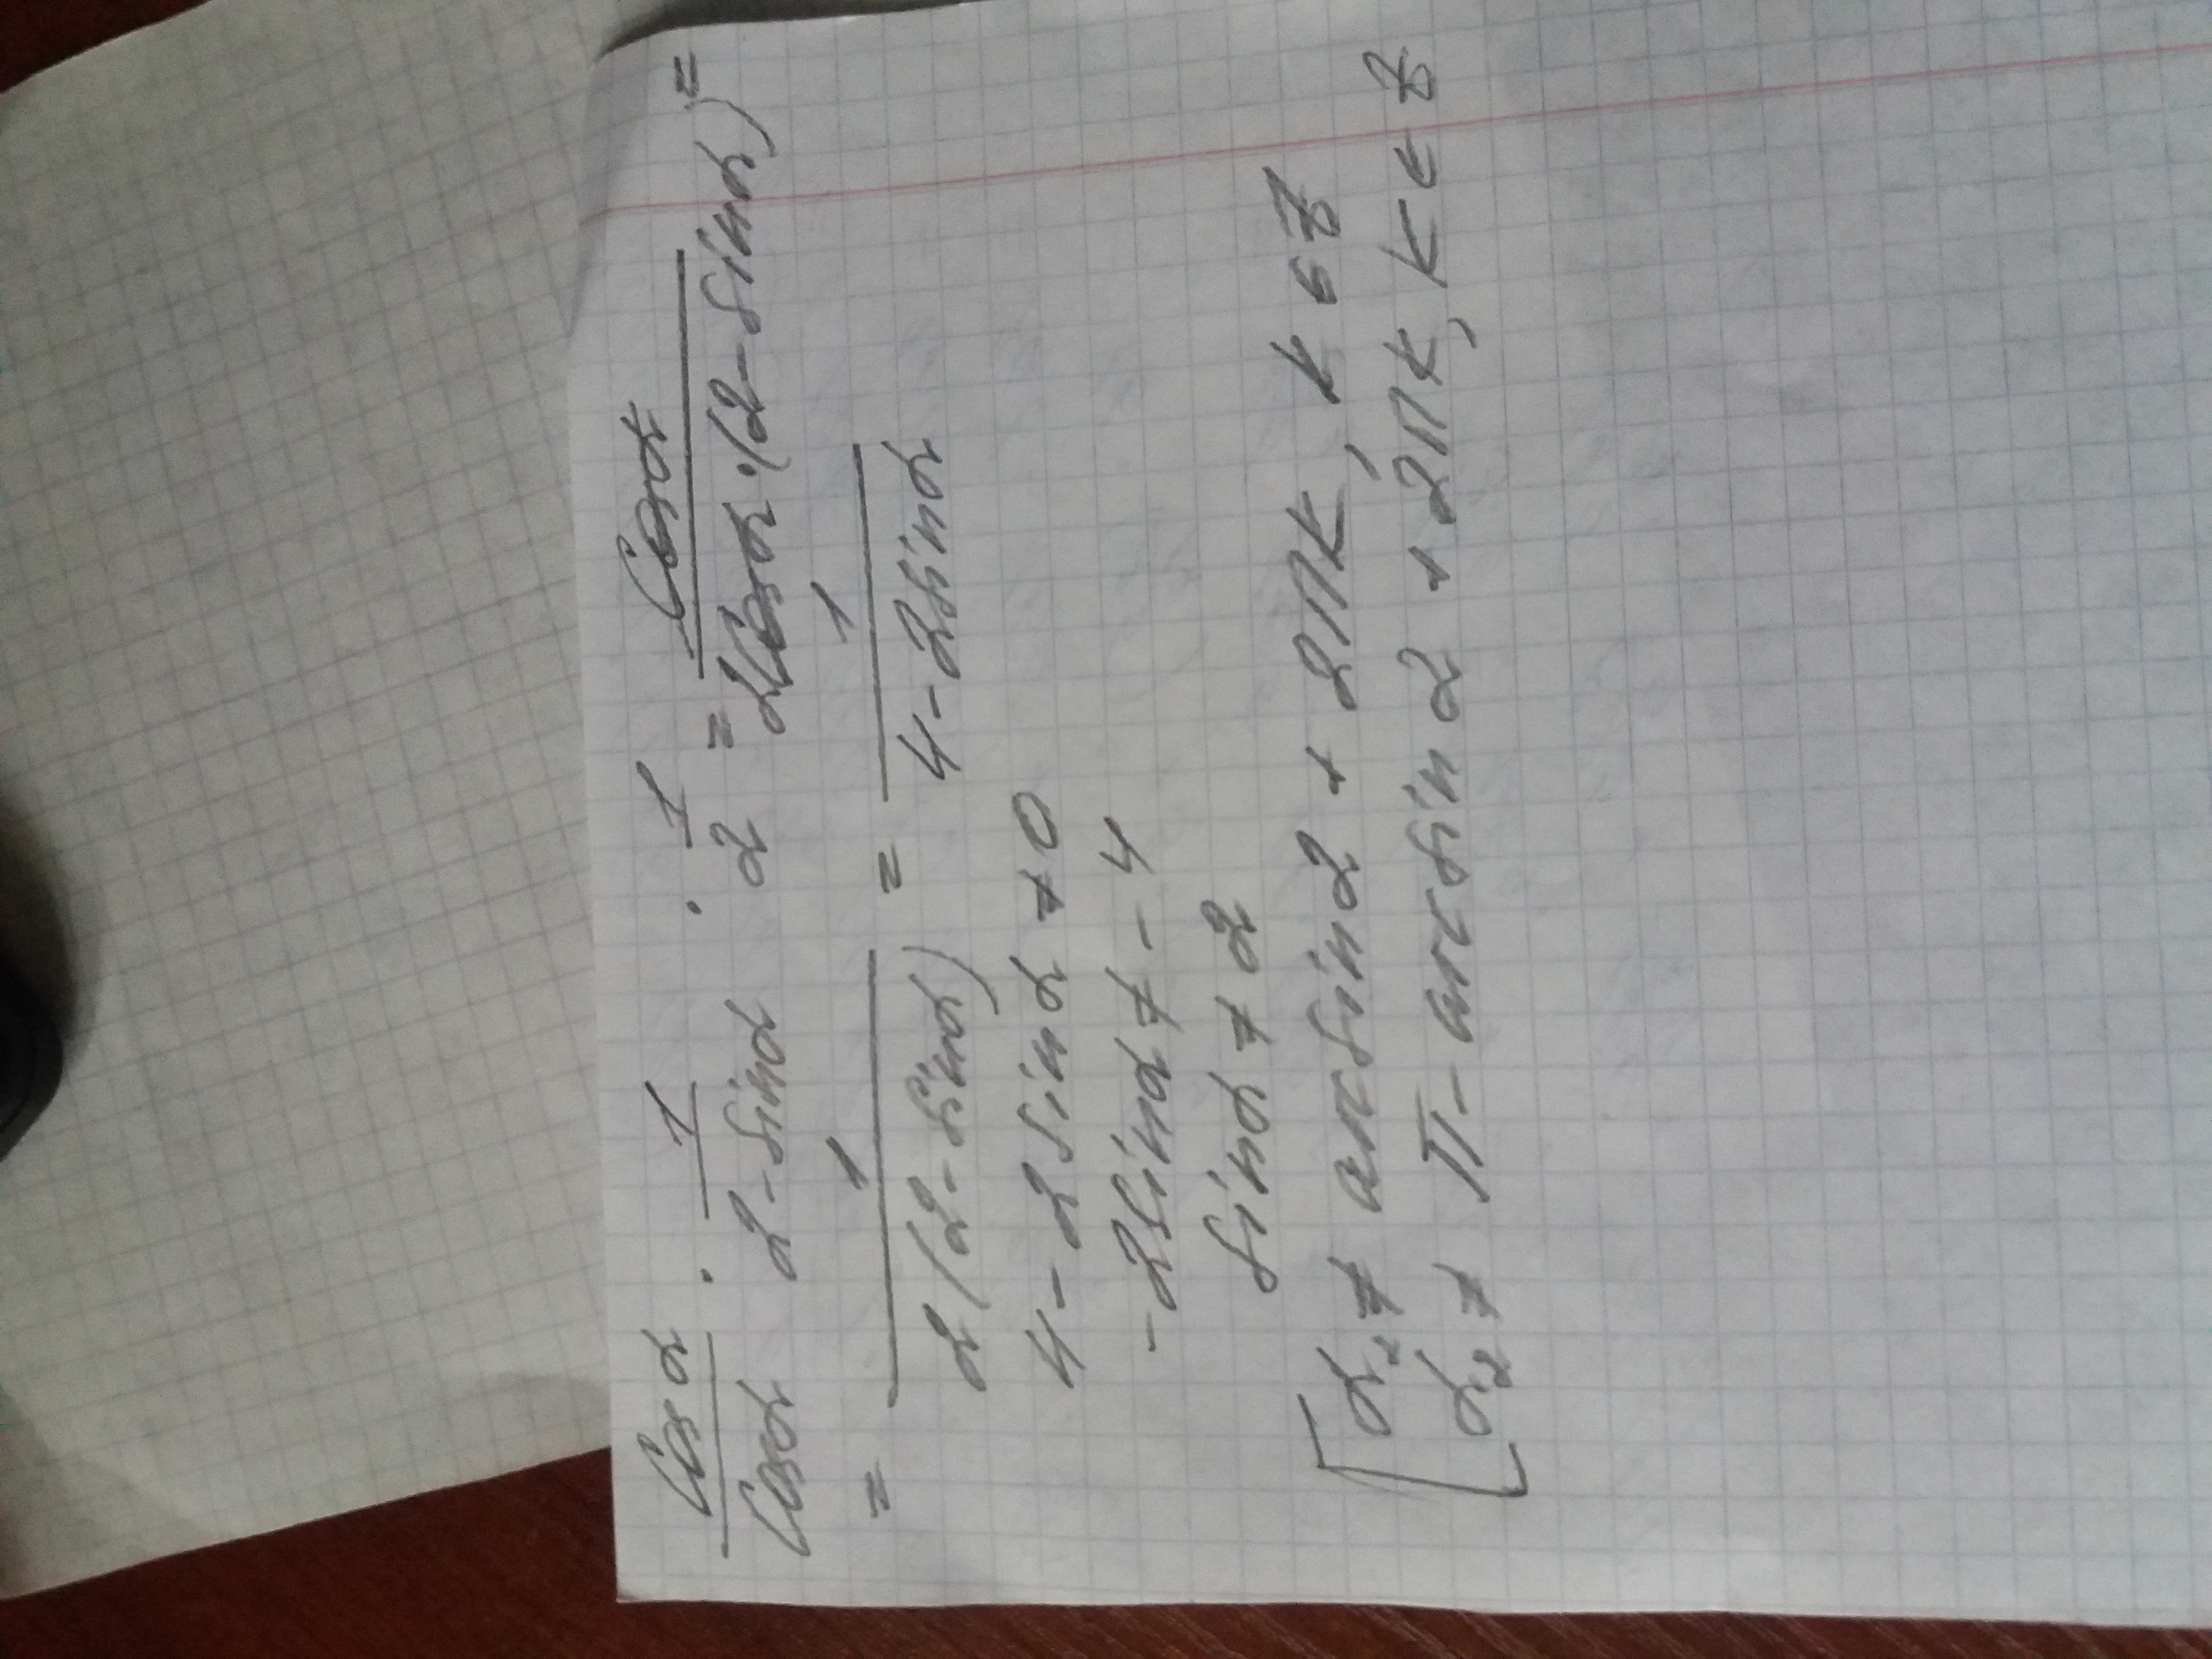 cos α / cos α · 1 / 2 - sin α · 1 / 2 = cos α / 2cos α · (2 - sin α) =
= 1 / 2(2 - sin α) = 1 / 4 - 2sin α
4 - 2sin α ≠ 0
-2sin α ≠ -4
sin α ≠ 2
[ α₁ ≠ arcsin 2 + 2πk, k ∈ Z
α₂ ≠ π - arcsin 2 + 2πk, k ∈ Z